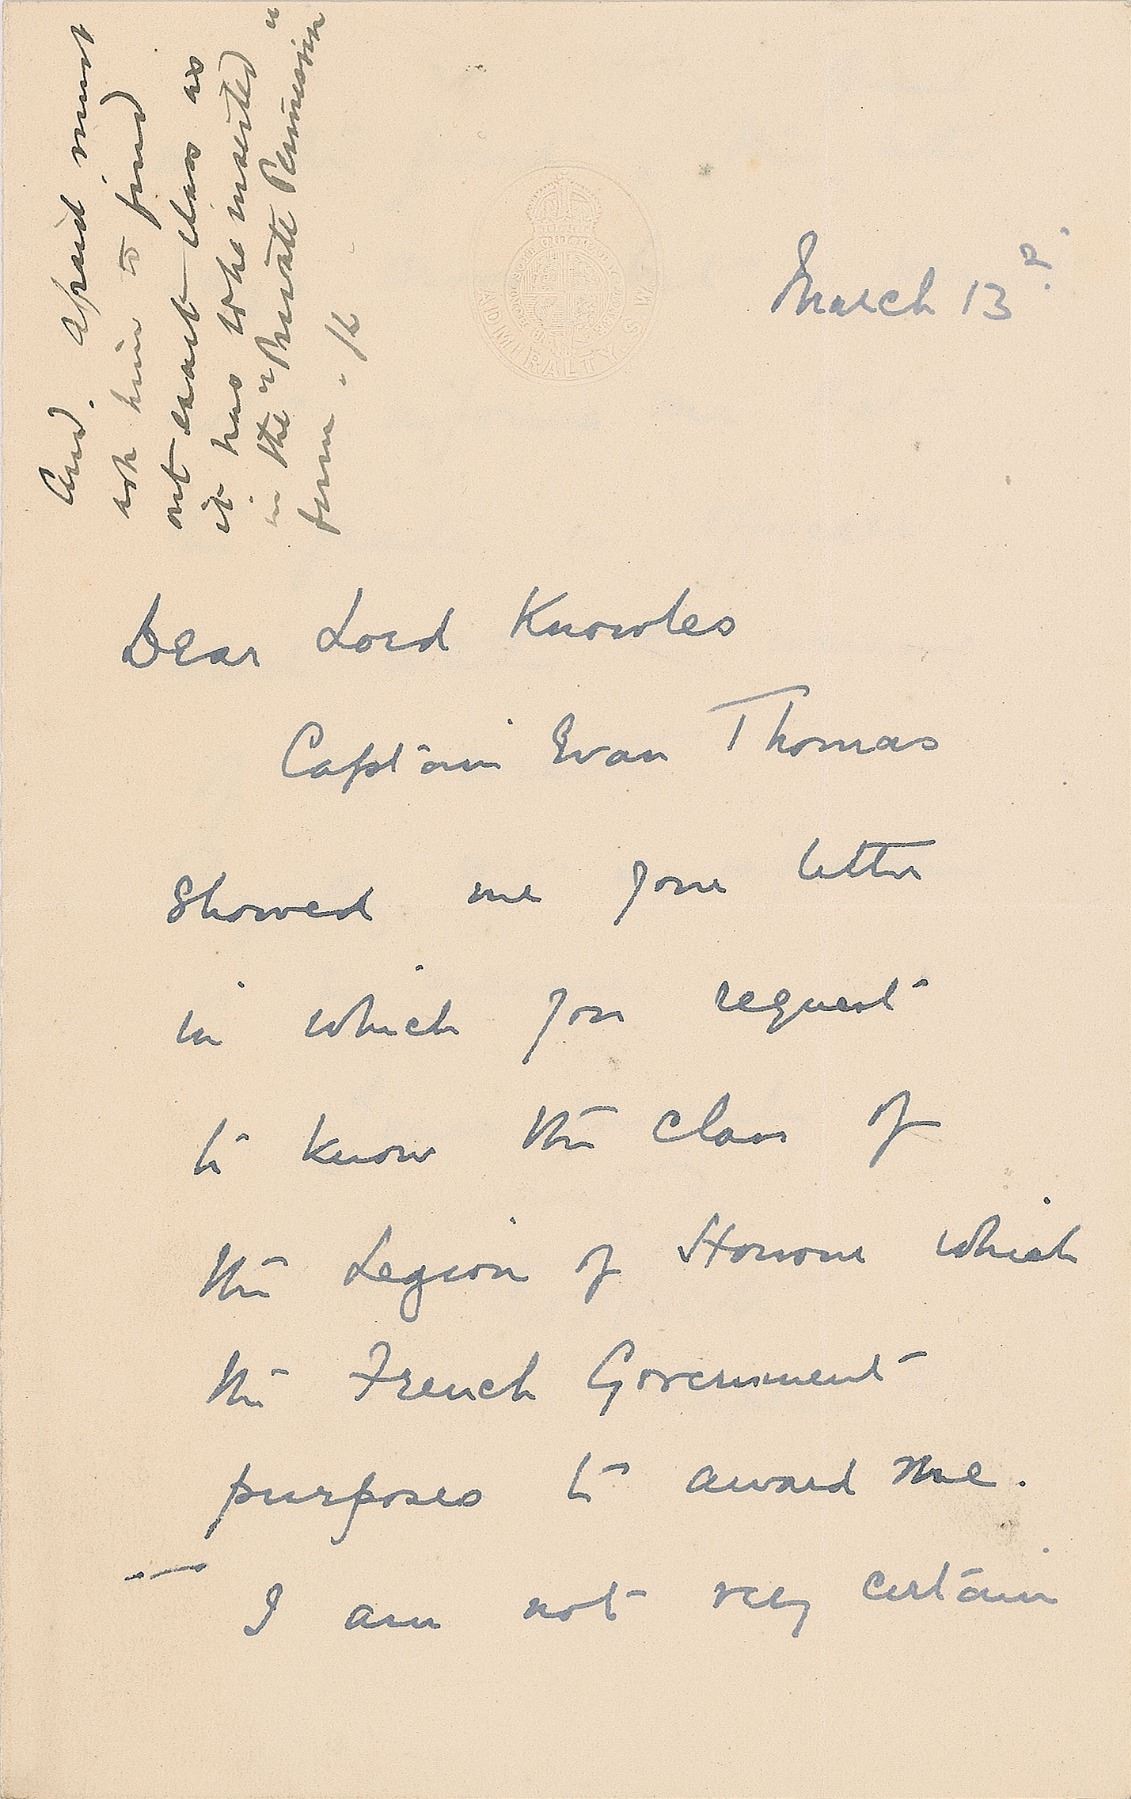 And. Afraid must
ask him to find
out exact class as
it has to be inserted
in the "Private Permission"
form.
ADMIRALTY S.W.
March 13
Dear Lord Knowles
Captain Evan Thomas
showed me your letter
in which you request
to know the class of
the Legion of Honour which
the French Government
purposes to award me.
I am not very certain